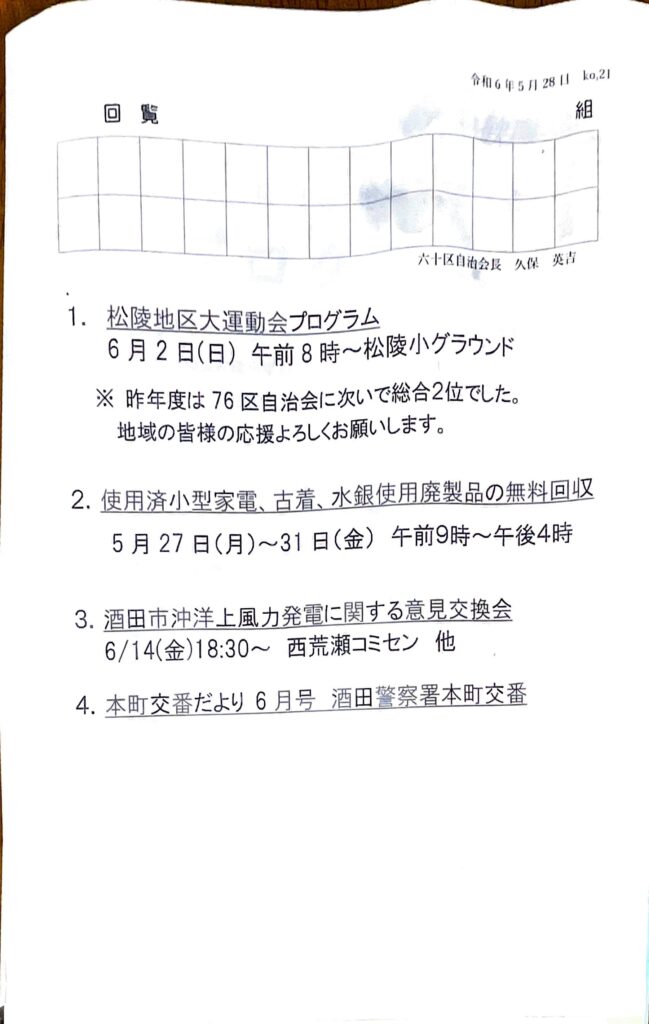 令和6年5月28日 ko,21
回覧 組
六十区自治会長 久保 英吉
1. 松陵地区大運動会プログラム
6月2日(日) 午前8時～松陵小グラウンド
※ 昨年度は76区自治会に次いで総合2位でした。
地域の皆様の応援よろしくお願いします。
2. 使用済小型家電、古着、水銀使用廃製品の無料回収
5月27日(月)～31日(金) 午前9時～午後4時
3. 酒田市沖洋上風力発電に関する意見交換会
6/14(金)18:30～ 西荒瀬コミセン 他
4. 本町交番だより 6月号 酒田警察署本町交番